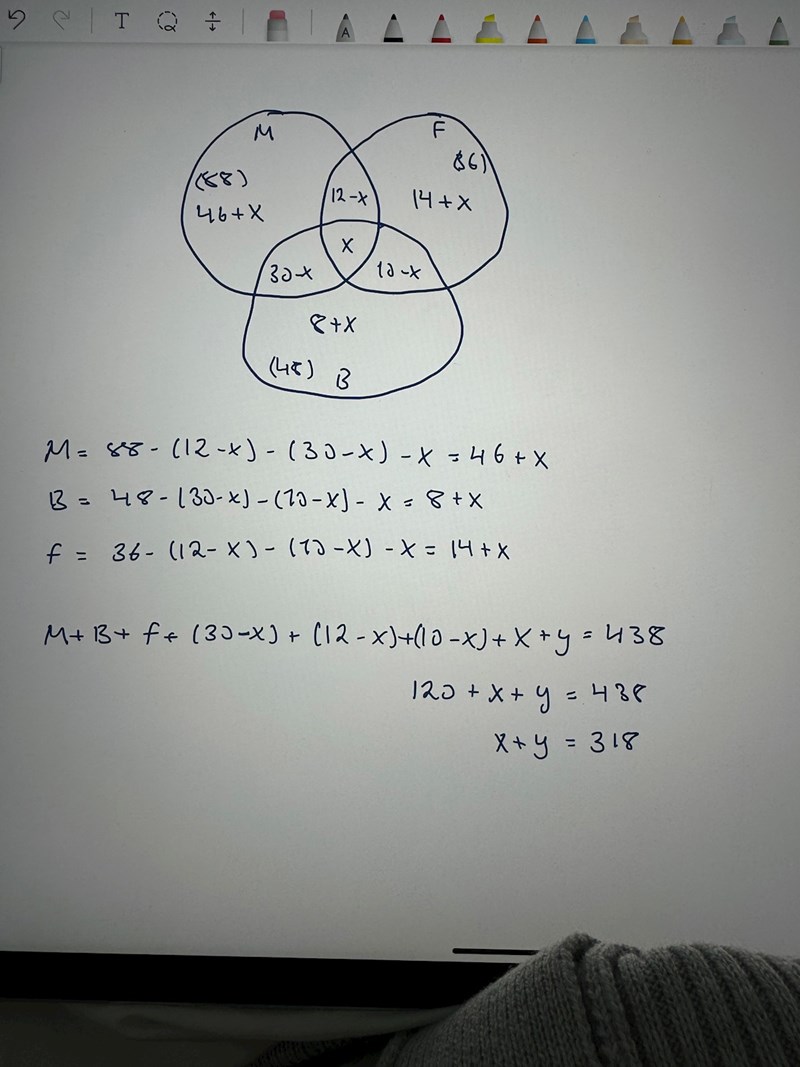 T
A
M
F
(88)
(36)
46+x
12-x
14+x
x
30-x
10-x
8+x
(48)
B
M = 88 - (12-x) - (30-x) - x = 46 + x
B = 48 - (30-x) - (10-x) - x = 8 + x
f = 36 - (12-x) - (10-x) - x = 14 + x
M + B + f + (30-x) + (12-x) + (10-x) + x + y = 438
120 + x + y = 438
x + y = 318